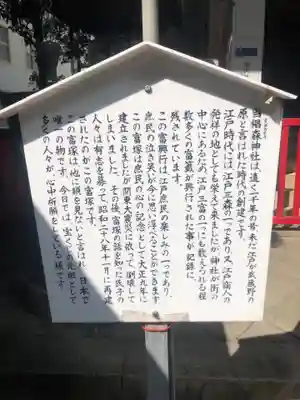 当椙森神社は遠く一千年の昔まだ江戸が武蔵野の
原と言はれた時代の創建です。
江戸時代には、江戸三森の一であり又、江戸商人の
発祥の地としても栄えて来ましたが神社が街の
中心にあるため、江戸三富の一にも数えられる程
数多くの富籤が興行された事が記録に
残されています。
この富興行は江戸庶民の楽しみの一であり、
庶民の泣き笑いが今に思い浮べることができます。
この富塚は庶民の心の記念として大正九年に
建立されましたが関東大震災に依って倒壊して
しまいました。その後、富塚の話を知った氏子の
人々は有志を募って、昭和二十八年十一月に再建
されたのがこの富塚です。
この富塚は他に類を見ないと言はれ、日本で
唯一の物です。今日では、宝くじの元祖として
多くの人々が、心中祈願をしている様です。